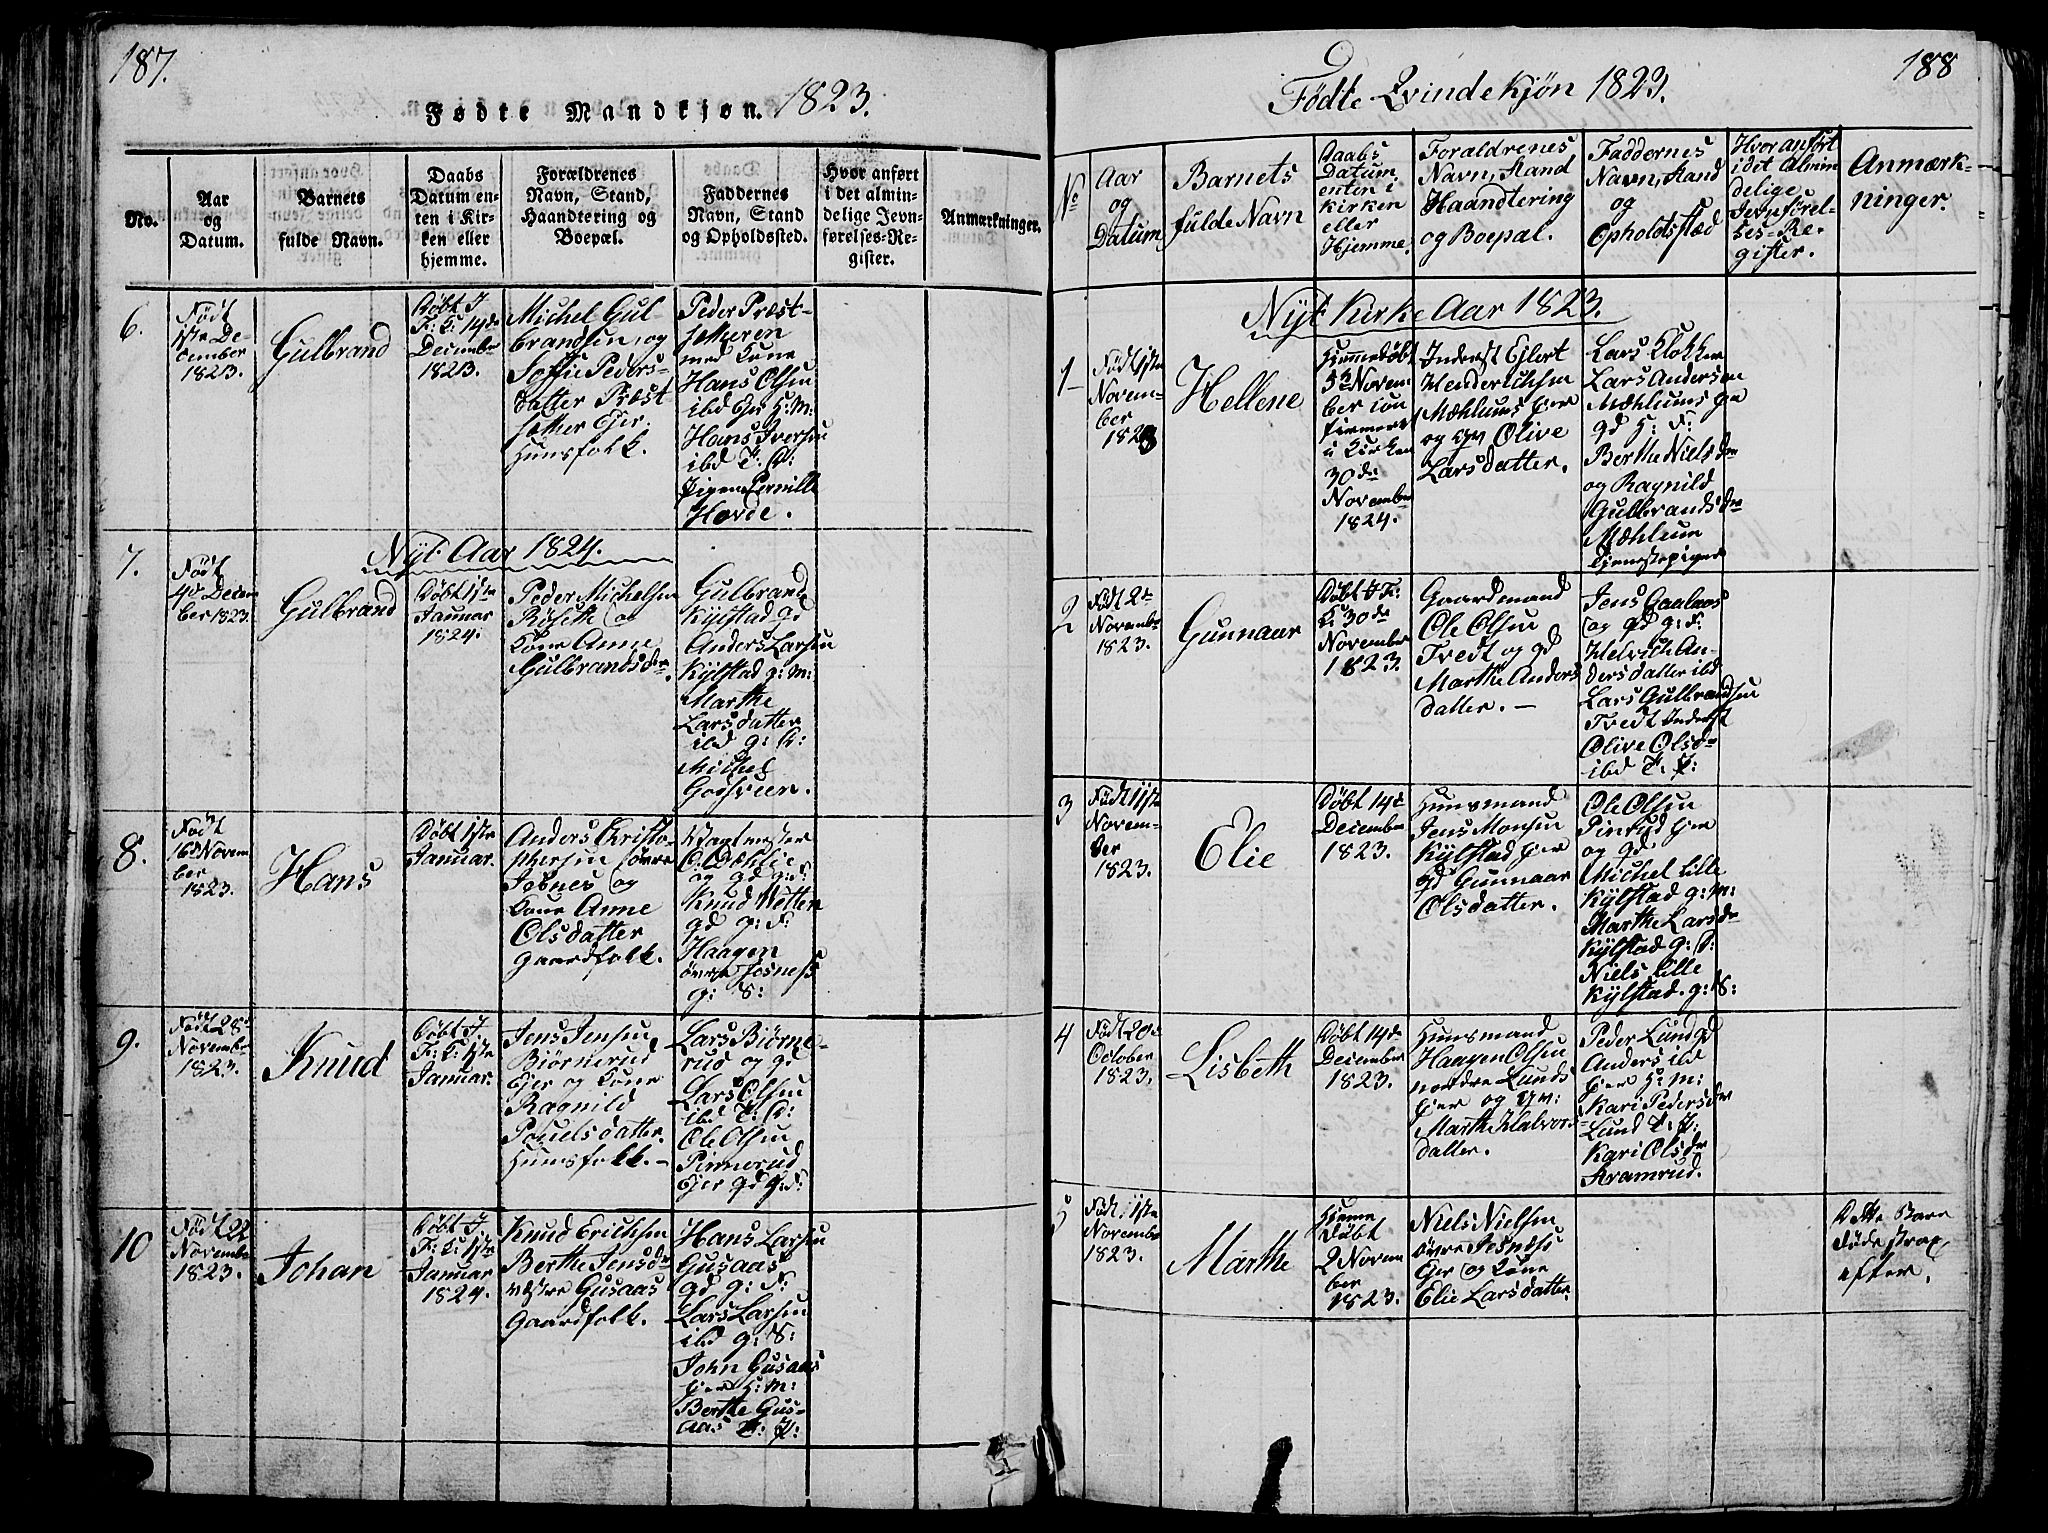 187.
Fødte Mandkjøn. 1823.
No.
Aar
og
Datum.
Barnets
fulde Navn.
Daabs
Datum en-
ten i Kir-
ken eller
hjemme.
Forældrenes
Navn, Stand,
Haandtering og
Boepæl.
Faddernes
Navn, Stand
og Opholdssted.
Hvor anført
i det almin-
delige Jevn-
førelses-Re-
gister.
Anmærkninger.
6.
Født
1ste De-
cember
1823.
Gulbrand
Døbt I
F: K: 14de
December
1823.
Michel Gul-
brandsen, og
Soffie Peders-
datter Præst
Ejer.
Huusfolk.
Peder Præst-
med Kone
Hans Olsen
ibd Ejer H: M:
Hans Iversen
ibd
Pigen Pernille
Hovde.
Nyt Aar 1824.
7.
Født
4de Decem
ber 1823.
Gulbrand
Døbt 1ste
Januar
1824.
Peder Michelsen
Røseth og
Kone Anne
Gulbrandsdr.
Gulbrand
Kylstad gd
Anders Larsen
Kylstad g: M:
Marthe
Larsdatter
ibd g: K:
Michel
Godsveen.
8.
Født
16de Novem
ber
1823.
Hans
Døbt 1ste
Januar.
Anders Christo-
phersen øvre
Josnes og
Kone Anne
Olsdatter
Gaardfolk.
Vagtmester
O. Dæhlie
og gd g: F:
Knud Wetten
gd g: F:
Haagen
øvre Josness
g: S:
9.
Født 28de
November
1823.
Knud
Døbt I
F: K: 1ste
Januar.
Jens Jensen
Biørnerud
Ejer og Kone
Ragnild
Pouelsdatter.
Huusfolk. –
Lars Biørne-
rud og gd
Lars Olsen
ibd
Ole Olsen
Pinnerud
Ejer gd g: F:
10
Født 22
November
1823.
Johan
Døbt I
F: K: 1ste
Januar
1824.
Knud Erichsen
Berthe Jensdr
vestre Gusaas
Gaardfolk.
Hans Larsen
Gusaas
gd g: F:
Lars Larsen
ibd g: S:
John Gusaas
Ejer H: M:
Berthe Gus-
aas T: P:
188
Fødte Qvindekjøn 1823.
No
Aar
og
Datum
Barnets
fulde Navn
Daabs
Datum
enten i
kirken
eller
Hjemme.
Foraldrenes
Navn, Stand
Haandtering
og Boepal.
Faddernes
Navn, Stand
og
Opholdsstæd
Hvor anført
i det Almin
delige
Jevnførel-
ses-Re-
gister.
Anmærk-
ninger.
Nyt Kirke Aar 1823.
1
Født 1ste
Novem-
ber
1823
Hellene
Hiemmedøbt
5te Novem
ber
i Kirken
30de
November
1824.
Inderst Ejlert
Henderichsen
Mæhlums Ejer
og Olive
Larsdatter.
Lars Klokker
Lars Andersen
Mæhlums
gd H: F:
Berthe Nielsdr
og Ragnild
Gulbrandsdr
Mæhlum
Tjenestepiger
2
Født 2de
Novembr
1823.
Gunnaur
Døbt I F:
K: 30de
November
1823.
Gaardmand
Ole Olsen
Tvedt og gd
Marthe Anders
datter. –
Jens Gaalaas
og gd g: F:
Helvich An-
dersdatter ibd
Lars Gulbrandsen
Tvedt Inderst
Olive Olsd-
ibd T: P:
3
Født 11ste
Novem-
ber
1823.
Elie
Døbt 14de
December
1823.
Huusmand
Jens Monsen
Kylstad Ejer
gd Gunnaur
Olsdatter.
Ole Olsen
Pinrud Ejer
og gd.
Michel Lille
Kylstad g: M:
Marthe Larsdr
Kylstad g: P:
Niels Lille
Kylstad. g: S:
4
Født 20de
October
1823.
Lisbeth
Døbt 14de
December
1823.
Huusmand
Haagen Olsen
nordre Lunds
Ejer og
Marthe Halvors-
datter.
Peder Lund gd
Anders ibd
Ejer H: M:
Kari Pedersdr
Lund T: P:
Kari Olsdr
Aramrud.
5
Født 11ste
November
1823.
Marthe
Hieme
Døbt
2 Novem
ber
1823.
Niels Nielsen
øvre Josness
Ejer og Kone
Elie Larsdatter.
Dette Barn
døde strax
efter.